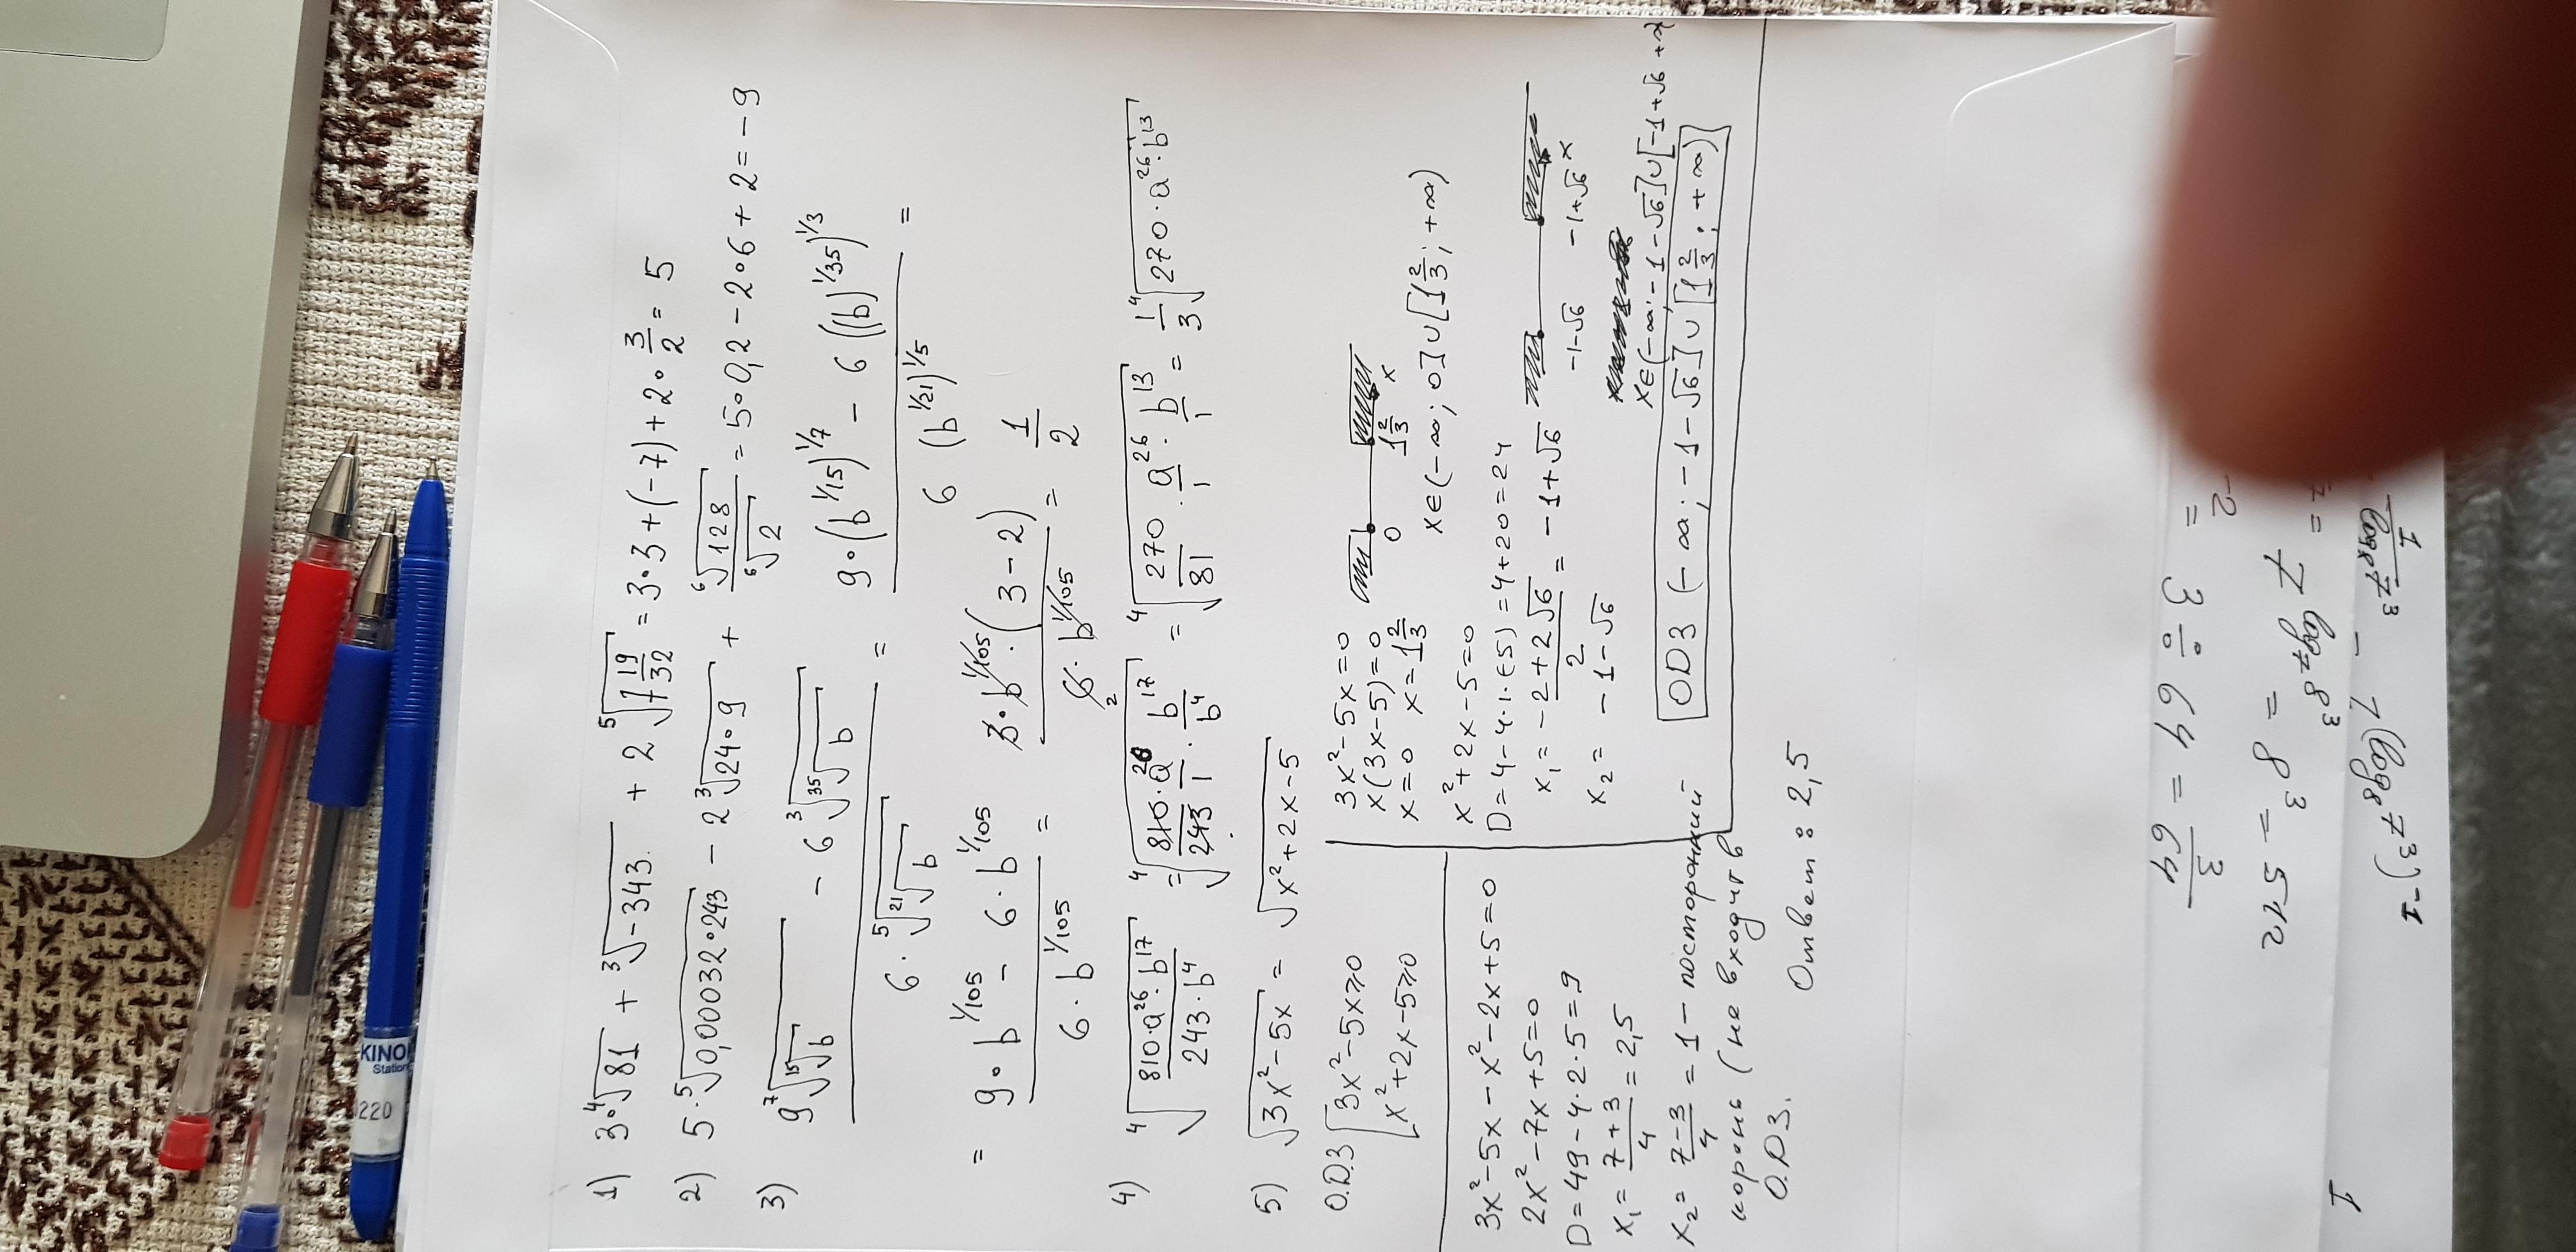 1) 3∘⁴√81 + ³√-343 + 2 ⁵√7 19/32 = 3∘3+(-7)+2∘3/2 = 5
2) 5·⁵√0,00032∘243 - 2 ³√24∘9 + ⁶√128 / ⁶√2 = 5∘0,2-2∘6+2=-9
3) (9 ⁷√¹⁵√b - 6 ³√³⁵√b) / (6·⁵√²¹√b) = (9∘(b^1/15)^1/7 - 6((b)^1/35)^1/3) / (6 (b^1/21)^1/5) =
= (9∘b^1/105 - 6·b^1/105) / (6·b^1/105) = (3∘b^1/105·(3-2)) / (6·b^1/105) = 1/2
2
4) ⁴√(810·a²⁶·b¹⁷ / 243·b⁴) = ⁴√(810·a²⁶/243·1 · b¹⁷/b⁴) = ⁴√(270/81 · a²⁶/1 · b¹³/1) = 1/3 ⁴√270·a²⁶·b¹³
5) √3x²-5x = √x²+2x-5
O.D.3 [3x²-5x≥0
x²+2x-5≥0
3x²-5x=0
x(3x-5)=0
x=0 x=1 2/3
0 1 2/3 x
x∈(-∞;0]∪[1 2/3;+∞)
x²+2x-5=0
D=4-4·1·(-5)=4+20=24
x₁= (-2+2√6)/2 = -1+√6
x₂= -1-√6
-1-√6 -1+√6 x
x∈(-∞;-1-√6]∪[-1+√6+∞)
OD3 (-∞;-1-√6]∪[1 2/3;+∞)
3x²-5x-x²-2x+5=0
2x²-7x+5=0
D=49-4·2·5=9
x₁= (7+3)/4 = 2,5
x₂= (7-3)/4 = 1 - посторонний
корень (не входит в
O.D3.
Ответ: 2,5
-2 = 3 ÷ 64 = 3/64
= 7^log₇8³ = 8³ = 512
1/log₈7³ - 7(log₈7³)⁻¹
1
KINO
Station
220